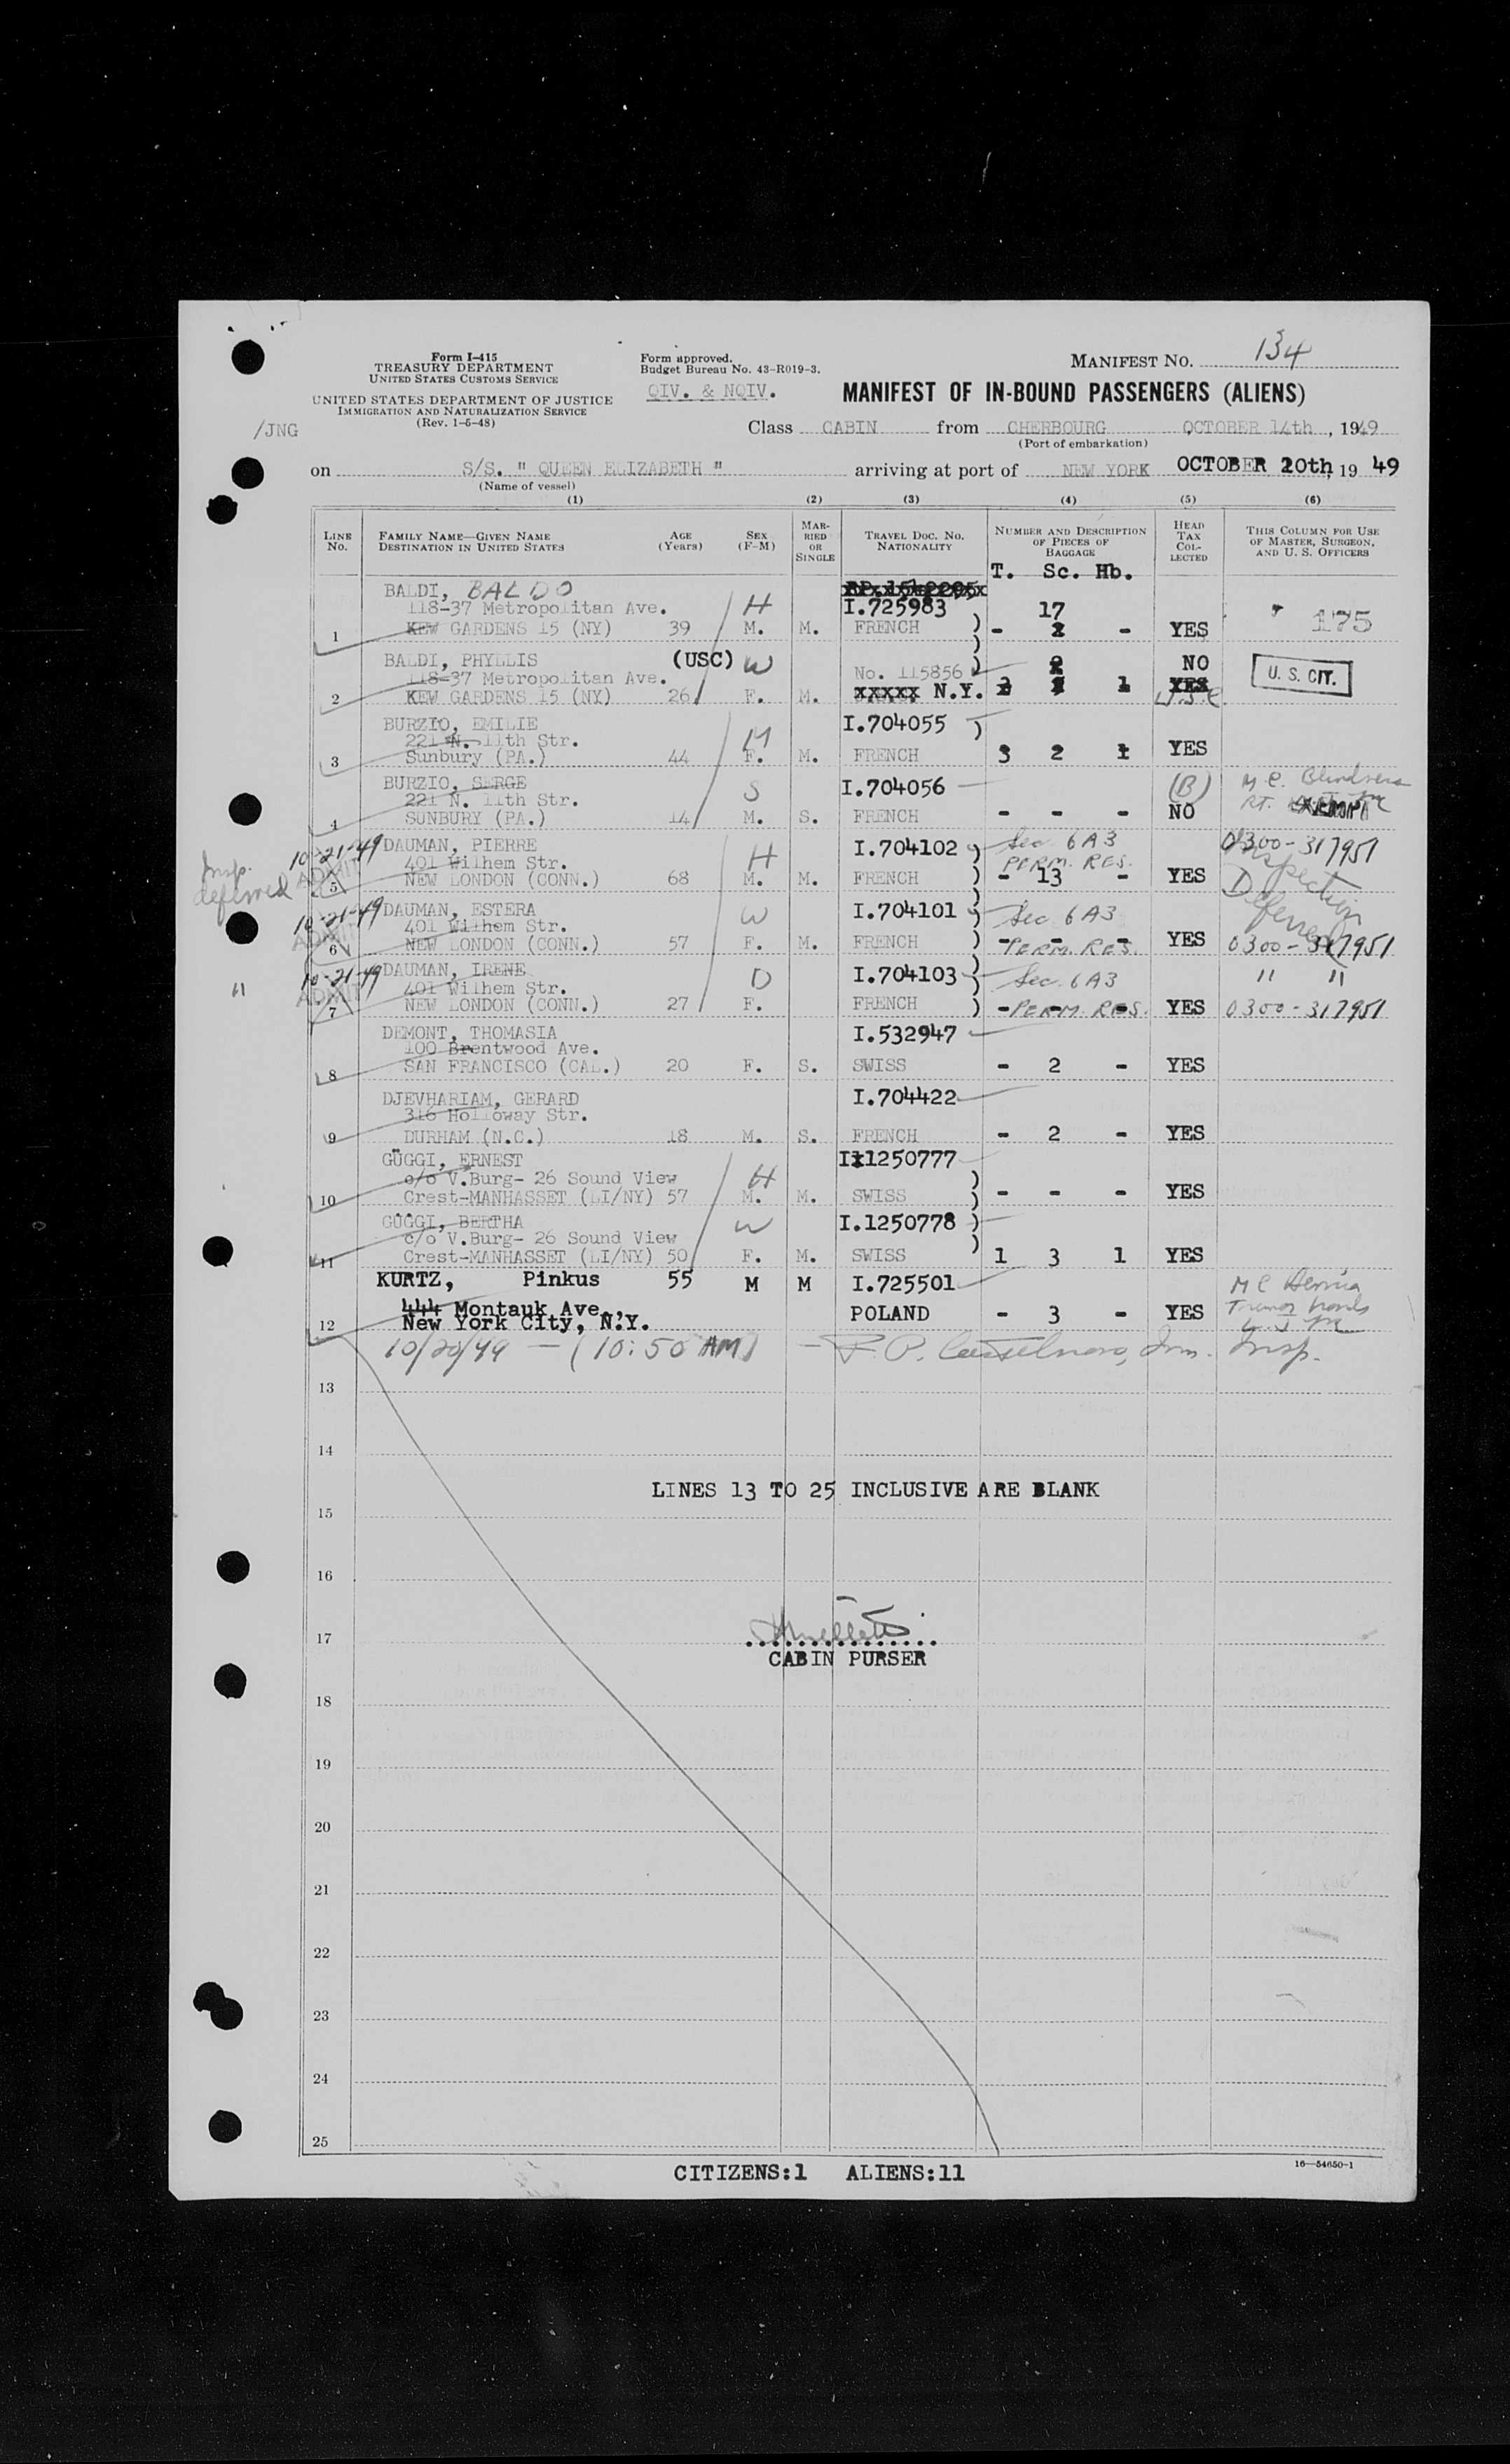 134
Form I-415
TREASURY DEPARTMENT
UNITED STATES CUSTOMS SERVICE
UNITED STATES DEPARTMENT OF JUSTICE
IMMIGRATION AND NATURALIZATION SERVICE
(Rev. 1-6-48)
/JNG
Form approved.
Budget Bureau No. 43-R019-3.
QIV. & NQIV.
MANIFEST NO.
MANIFEST OF IN-BOUND PASSENGERS (ALIENS)
Class CABIN from CHERBOURG OCTOBER 14th, 1949
(Port of embarkation)
on S/S. " QUEEN ELIZABETH " arriving at port of NEW YORK OCTOBER 20th, 19 49
(Name of vessel)
(1) (2) (3) (4) (5) (6)
LINE No. FAMILY NAME—GIVEN NAME DESTINATION IN UNITED STATES AGE (Years) SEX (F-M) MARRIED OR SINGLE TRAVEL DOC. NO. NATIONALITY NUMBER AND DESCRIPTION OF PIECES OF BAGGAGE HEAD TAX COLLECTED THIS COLUMN FOR USE OF MASTER, SURGEON, AND U. S. OFFICERS
T. Sc. Hb.
BALDI, BALDO
118-37 Metropolitan Ave. H I.725983 17 175
1 KEW GARDENS 15 (NY) 39 M. M. FRENCH - 2 - YES
BALDI, PHYLLIS (USC) W No. 115856 2 NO U. S. CIT.
118-37 Metropolitan Ave.
2 KEW GARDENS 15 (NY) 26 F. M. xxxxx N.Y. 1 YES
BURZIO, EMILIE M I.704055
221 N. 11th Str.
3 Sunbury (PA.) 44 F. M. FRENCH 3 2 1 YES
BURZIO, SERGE S I.704056 (B)
221 N. 11th Str.
4 SUNBURY (PA.) 14 M. S. FRENCH - - - NO
10-21-49 DAUMAN, PIERRE H I.704102 Sec. 6A3 0300-317951
Insp. deferred ADMIT 401 Wilhem Str. PERM. RES. Inspection
5 NEW LONDON (CONN.) 68 M. M. FRENCH - 13 - YES Deferred
10-21-49 DAUMAN, ESTERA W I.704101 Sec 6A3
ADMIT 401 Wilhem Str.
6 NEW LONDON (CONN.) 57 F. M. FRENCH PERM. RES. YES 0300-317951
10-21-49 DAUMAN, IRENE D I.704103 Sec. 6A3 " "
" ADMIT 401 Wilhem Str.
7 NEW LONDON (CONN.) 27 F. FRENCH PERM. RES. YES 0300-317951
DEMONT, THOMASIA I.532947
100 Brentwood Ave.
8 SAN FRANCISCO (CAL.) 20 F. S. SWISS - 2 - YES
DJEVHARIAM, GERARD I.704422
316 Holloway Str.
9 DURHAM (N.C.) 18 M. S. FRENCH - 2 - YES
GÜGGI, ERNEST I.1250777
c/o V.Burg- 26 Sound View H
10 Crest-MANHASSET (LI/NY) 57 M. M. SWISS - - - YES
GÜGGI, BERTHA W I.1250778
c/o V.Burg- 26 Sound View
11 Crest-MANHASSET (LI/NY) 50 F. M. SWISS 1 3 1 YES
KURTZ, Pinkus 55 M M I.725501
444 Montauk Ave.,
POLAND - 3 - YES
12 New York City, N.Y.
10/20/49 - (10:50 AM) Imm. Insp.
13
14
LINES 13 TO 25 INCLUSIVE ARE BLANK
15
16
17
CABIN PURSER
18
19
20
21
22
23
24
25
CITIZENS:1 ALIENS:11
16—54650-1